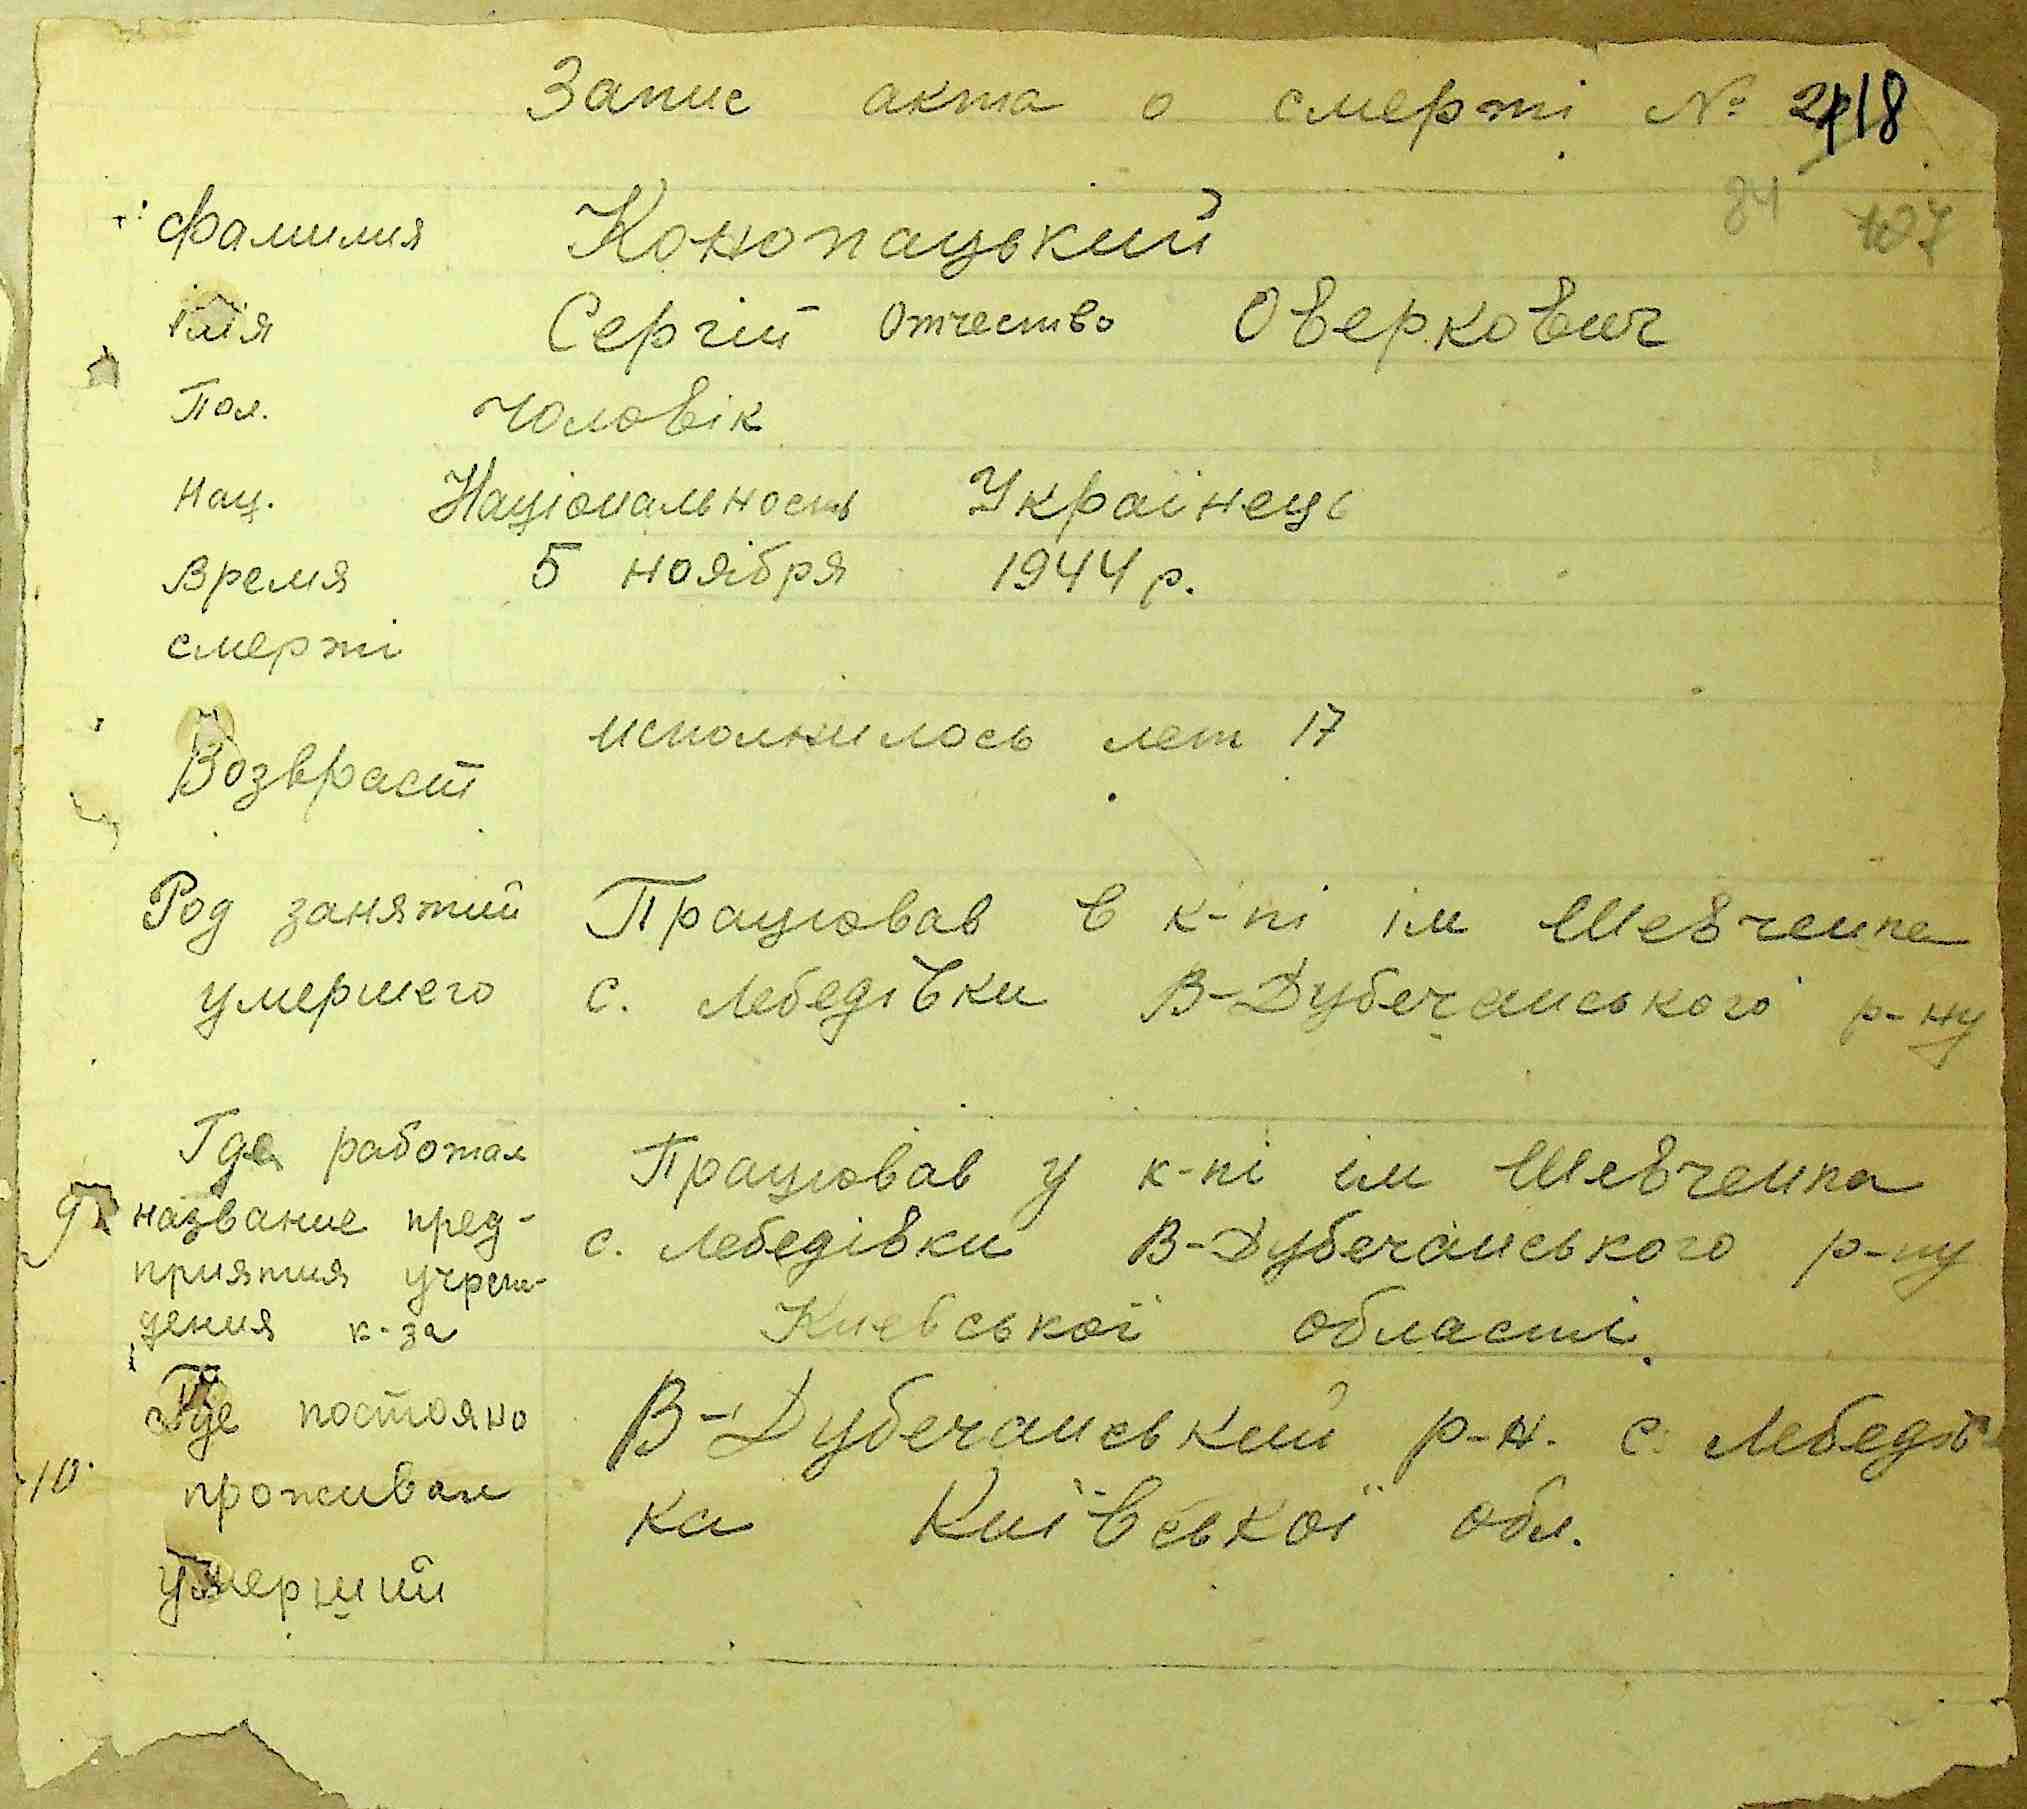 Запис акта о смерті №
84 107
Фамилия Конопацький
імія Сергій Отчество Оверкович
Пол. Чоловік
Нац. Національность Українець
Время 5 ноябіря 1944 р.
смерті
исполнилось лет 17
Возвраст
Род занятий Працював в к-пі ім Шевченка
умершего с. Лебедівки В-Дубечанського р-ну
Где работал Працював у к-пі ім Шевченка
9. название пред- с. Лебедівки В-Дубечанського р-ну
приятия учреж-
дения к-за Киевської області
Где постояно В-Дубечанський р-н. с. Лебедів
10. проживал ка Київської обл.
Умерший